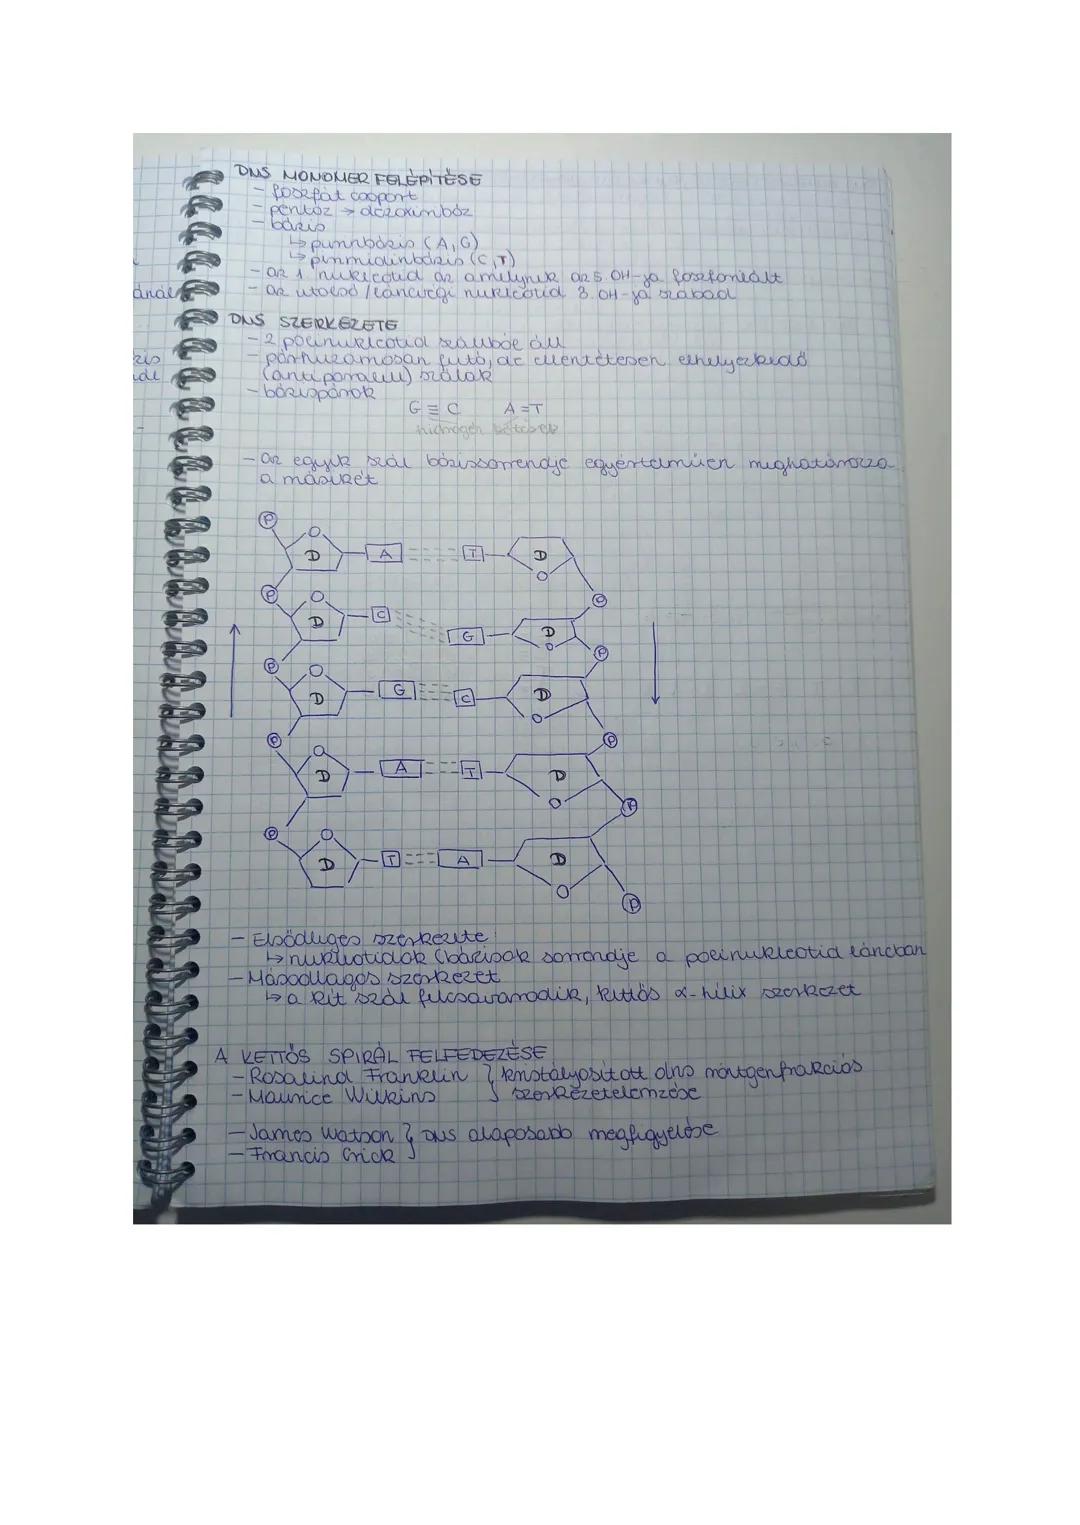 DNS MONOMER FELÉPÍTÉSE
- foszfát csoport
- pentóz → dezoxiribóz
- bázis
↳ purinbázis (A, G)
↳ pirimidinbázis (C, T)
- az 1. nukleotid az amelynek az 5. OH-ja foszforilált
- az utolsó / láncvégi nukleotid 3. OH-ja szabad
DNS SZERKEZETE
- 2 polinukleotid szálból áll
- párhuzamosan futó, de ellentétesen elhelyezkedő
(antiparalell) szálak
- bázispárok
G ≡ C A = T
hidrogén kötések
- az egyik szál bázissorrendje egyértelműen meghatározza
a másikét
P
O
D A T D
O
P P
O
D C
G D
O
P P
O
D G C D
O
P P
O
D A T D
O
P P
O
D T A D
O
P
- Elsődleges szerkezete:
↳ nukleotidok (bázisok sorrendje a polinukleotid láncban
- Másodlagos szerkezet
↳ a két szál felcsavarodik, kettős α-hélix szerkezet
A KETTŐS SPIRÁL FELFEDEZÉSE
- Rosalind Franklin } kristályosított dns röntgenfrakciós
- Maurice Wilkins szerkezetelemzése
- James Watson } DNS alaposabb megfigyelése
- Francis Crick